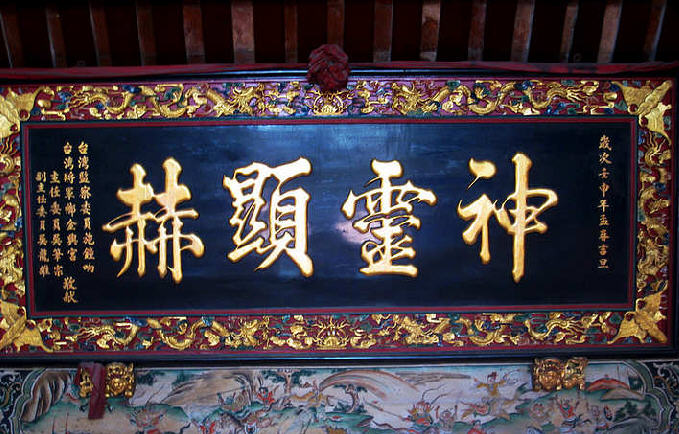 歲次壬申年孟吉旦
神靈顯赫
台灣監察委員施鐘响
台灣將軍鄉金興宮 敬献
主任委員吳宗
副主任委員吳龍雄